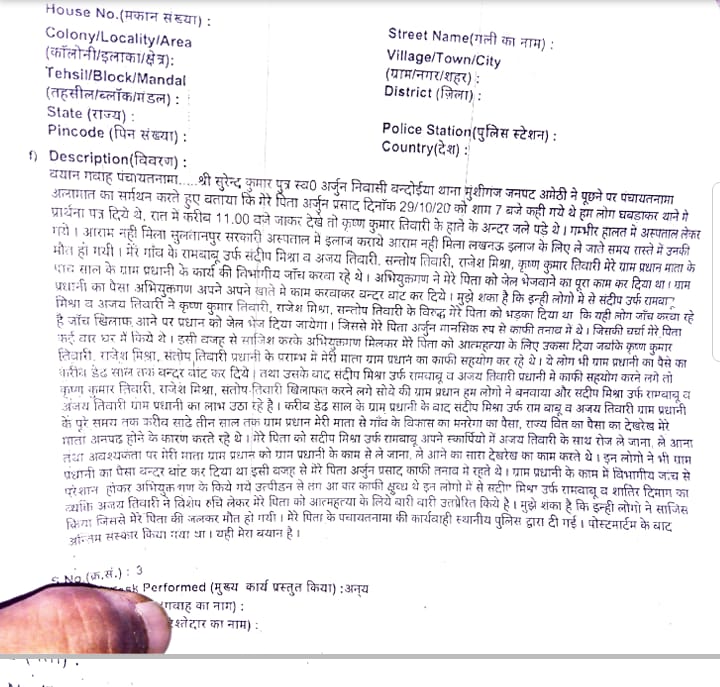 House No.(मकान संख्या) :
Colony/Locality/Area
(कॉलोनी/इलाका/क्षेत्र):
Tehsil/Block/Mandal
(तहसील/ब्लॉक/मंडल) :
State (राज्य) :
Pincode (पिन संख्या) :
Street Name(गली का नाम) :
Village/Town/City
(ग्राम/नगर/शहर) :
District (ज़िला) :
Police Station(पुलिस स्टेशन) :
Country(देश) :
f) Description(विवरण) :
बयान गवाह पंचायतनामा.....श्री सुरेन्द कुमार पुत्र स्व0 अर्जुन निवासी बन्दोईया थाना मुंशीगज जनपद अमेठी ने पूछने पर पंचायतनामा
अलामात का सर्मथन करते हुए बताया कि मेरे पिता अर्जुन प्रसाद दिनॉक 29/10/20 को शाम 7 बजे कही गये थे हम लोग घबड़ाकर थाने मे
प्रार्थना पत्र दिये थे, रात में करीब 11.00 वजे जाकर देखे तो कृष्ण कुमार तिवारी के हाते के अन्दर जले पड़े थे। गम्भीर हालत में अस्पताल लेकर
गये । आराम नही मिला सुलतानपुर सरकारी अस्पताल में इलाज कराये आराम नही मिला लखनऊ इलाज के लिए ले जाते समय रास्ते में उनकी
मौत हो गयी । मेरे गॉव के रामबाबू उर्फ संदीप मिश्रा व अजय तिवारी, सन्तोष तिवारी, राजेश मिश्रा, कृष्ण कुमार तिवारी मेरे ग्राम प्रधान माता के
पाच साल के ग्राम प्रधानी के कार्य की विभागीय जॉच करवा रहे थे । अभियुक्तगण ने मेरे पिता को जेल भेजवाने का पूरा काम कर दिया था । ग्राम
प्रधानी का पैसा अभियुक्तगण अपने अपने खाते मे काम करवाकर बन्दर बाट कर दिये । मुझे शका है कि इन्ही लोगो मे से संदीप उर्फ रामबाबू
मिश्रा व अजय तिवारी ने कृष्ण कुमार तिवारी, राजेश मिश्रा, सन्तोप तिवारी के विरुद्ध मेरे पिता को भडका दिया था कि यही लोग जॉच करवा रहे
है जॉच खिलाफ आने पर प्रधान को जेल भेज दिया जायेगा । जिससे मेरे पिता अर्जुन मानसिक रुप से काफी तनाव मे थे । जिसकी चर्चा मेरे पिता
कई वार घर में किये थे । इसी वजह से साजिश करके अभियुक्तगण मिलकर मेरे पिता को आत्महत्या के लिए उकसा दिया जबकि कृष्ण कुमार
तिवारी, राजेश मिश्रा, संतोप तिवारी प्रधानी के परारम्भ मे मेरी माता ग्राम प्रधान का काफी सहयोग कर रहे थे । ये लोग भी ग्राम प्रधानी का पैसे का
करीब डेढ साल तक बन्दर बॉट कर दिये । तथा उसके बाद संदीप मिश्रा उर्फ रामबाबू व अजय तिवारी प्रधानी मे काफी सहयोग करने लगे तो
कृष्ण कुमार तिवारी, राजेश मिश्रा, सतोष तिवारी खिलाफत करने लगे सोचे की ग्राम प्रधान हम लोगो ने बनवाया और सदीप मिश्रा उर्फ रामबाबू व
अजय तिवारी ग्राम प्रधानी का लाभ उठा रहे है । करीब डेढ साल के ग्राम प्रधानी के बाद संदीप मिश्रा उर्फ राम बाबू व अजय तिवारी ग्राम प्रधानी
के पूरे समय तक करीब साढे तीन साल तक ग्राम प्रधान मेरी माता से गॉव के विकास का मनरेगा का पैसा, राज्य वित का पैसा का देखरेख मेरे
माता अनपढ होने के कारण करते रहे थे । मेरे पिता को सदीप मिश्रा उर्फ रामबाबू अपने स्कार्पियो में अजय तिवारी के साथ रोज ले जाना, ले आना
तथा अवश्यकता पर मेरी माता ग्राम प्रधान को ग्राम प्रधानी के काम से ले जाना, ले आने का सारा देखरेख का काम करते थे । इन लोगो ने भी ग्राम
प्रधानी का पैसा बन्दर बांट कर दिया था इसी वजह से मेरे पिता अर्जुन प्रसाद काफी तनाव मे रहते थे । ग्राम प्रधानी के काम में विभागीय जाच से
परेशान होकर अभियुक्त गण के किये गये उत्पीडन से तंग आ कर काफी क्षुब्ध थे इन लोगो में से सदीप मिश्रा उर्फ रामबाबू व शातिर दिमाग का
व्यक्ति अजय तिवारी ने विशेप रुचि लेकर मेरे पिता को आत्महत्या के लिये बारी वारी उतप्रेरित किये है । मुझे शका है कि इन्ही लोगो ने साजिस
किया जिससे मेरे पिता की जलकर मौत हो गयी । मेरे पिता के पंचायतनामा की कार्यवाही स्थानीय पुलिस द्वारा दी गई । पोस्टमार्टम के बाद
अन्तिम संस्कार किया गया था । यही मेरा बयान है ।
S.No.(क्र.सं.) : 3
Performed (मुख्य कार्य प्रस्तुत किया) :अन्य
(गवाह का नाम) :
का नाम) :